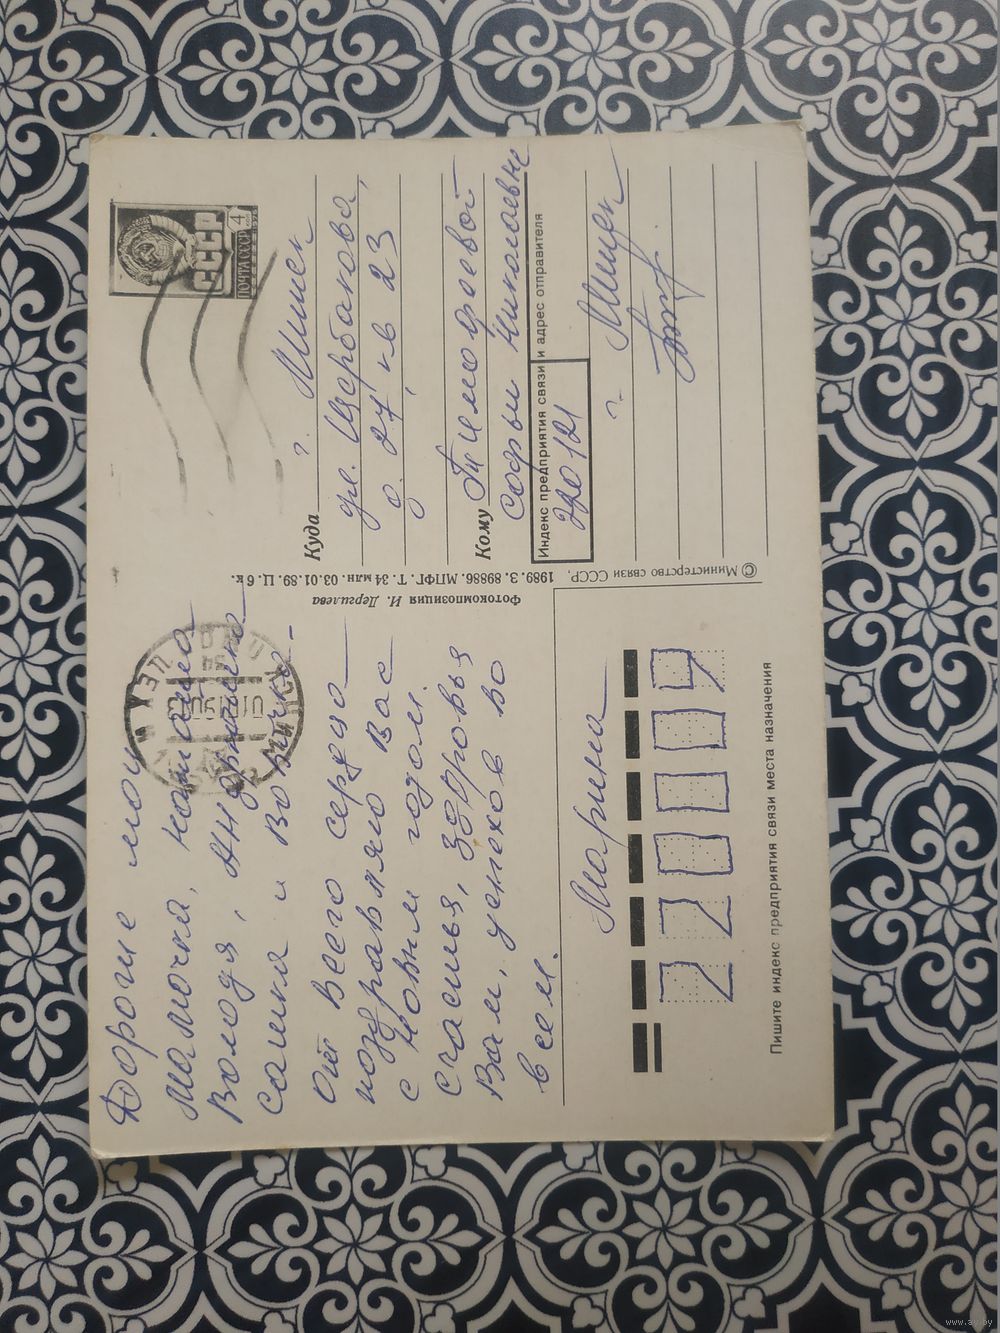 Дорогие мои
мамочка, Наташа
Володя,
Сашка и Вовичка.
От всего сердца
поздравляю Вас
с Новым годом.
Счастья, здоровья
Вам, успехов во
всем.
Марина
220009
Пишите индекс предприятия связи места назначения
Фотокомпозиция И. Дергилева
1989. З. 89886. МПФГ. Т. 34 млн. 03.01.89. Ц. 6 к.
© Министерство связи СССР,
СССР
4
коп
ПОЧТА СССР
МИНСК
Куда г. Минск
ул. Щербакова,
д. 27, кв 23
Кому Тимофеевой
Софьи Николаевне
Индекс предприятия связи и адрес отправителя
220121
г. Минск
www.ay.by